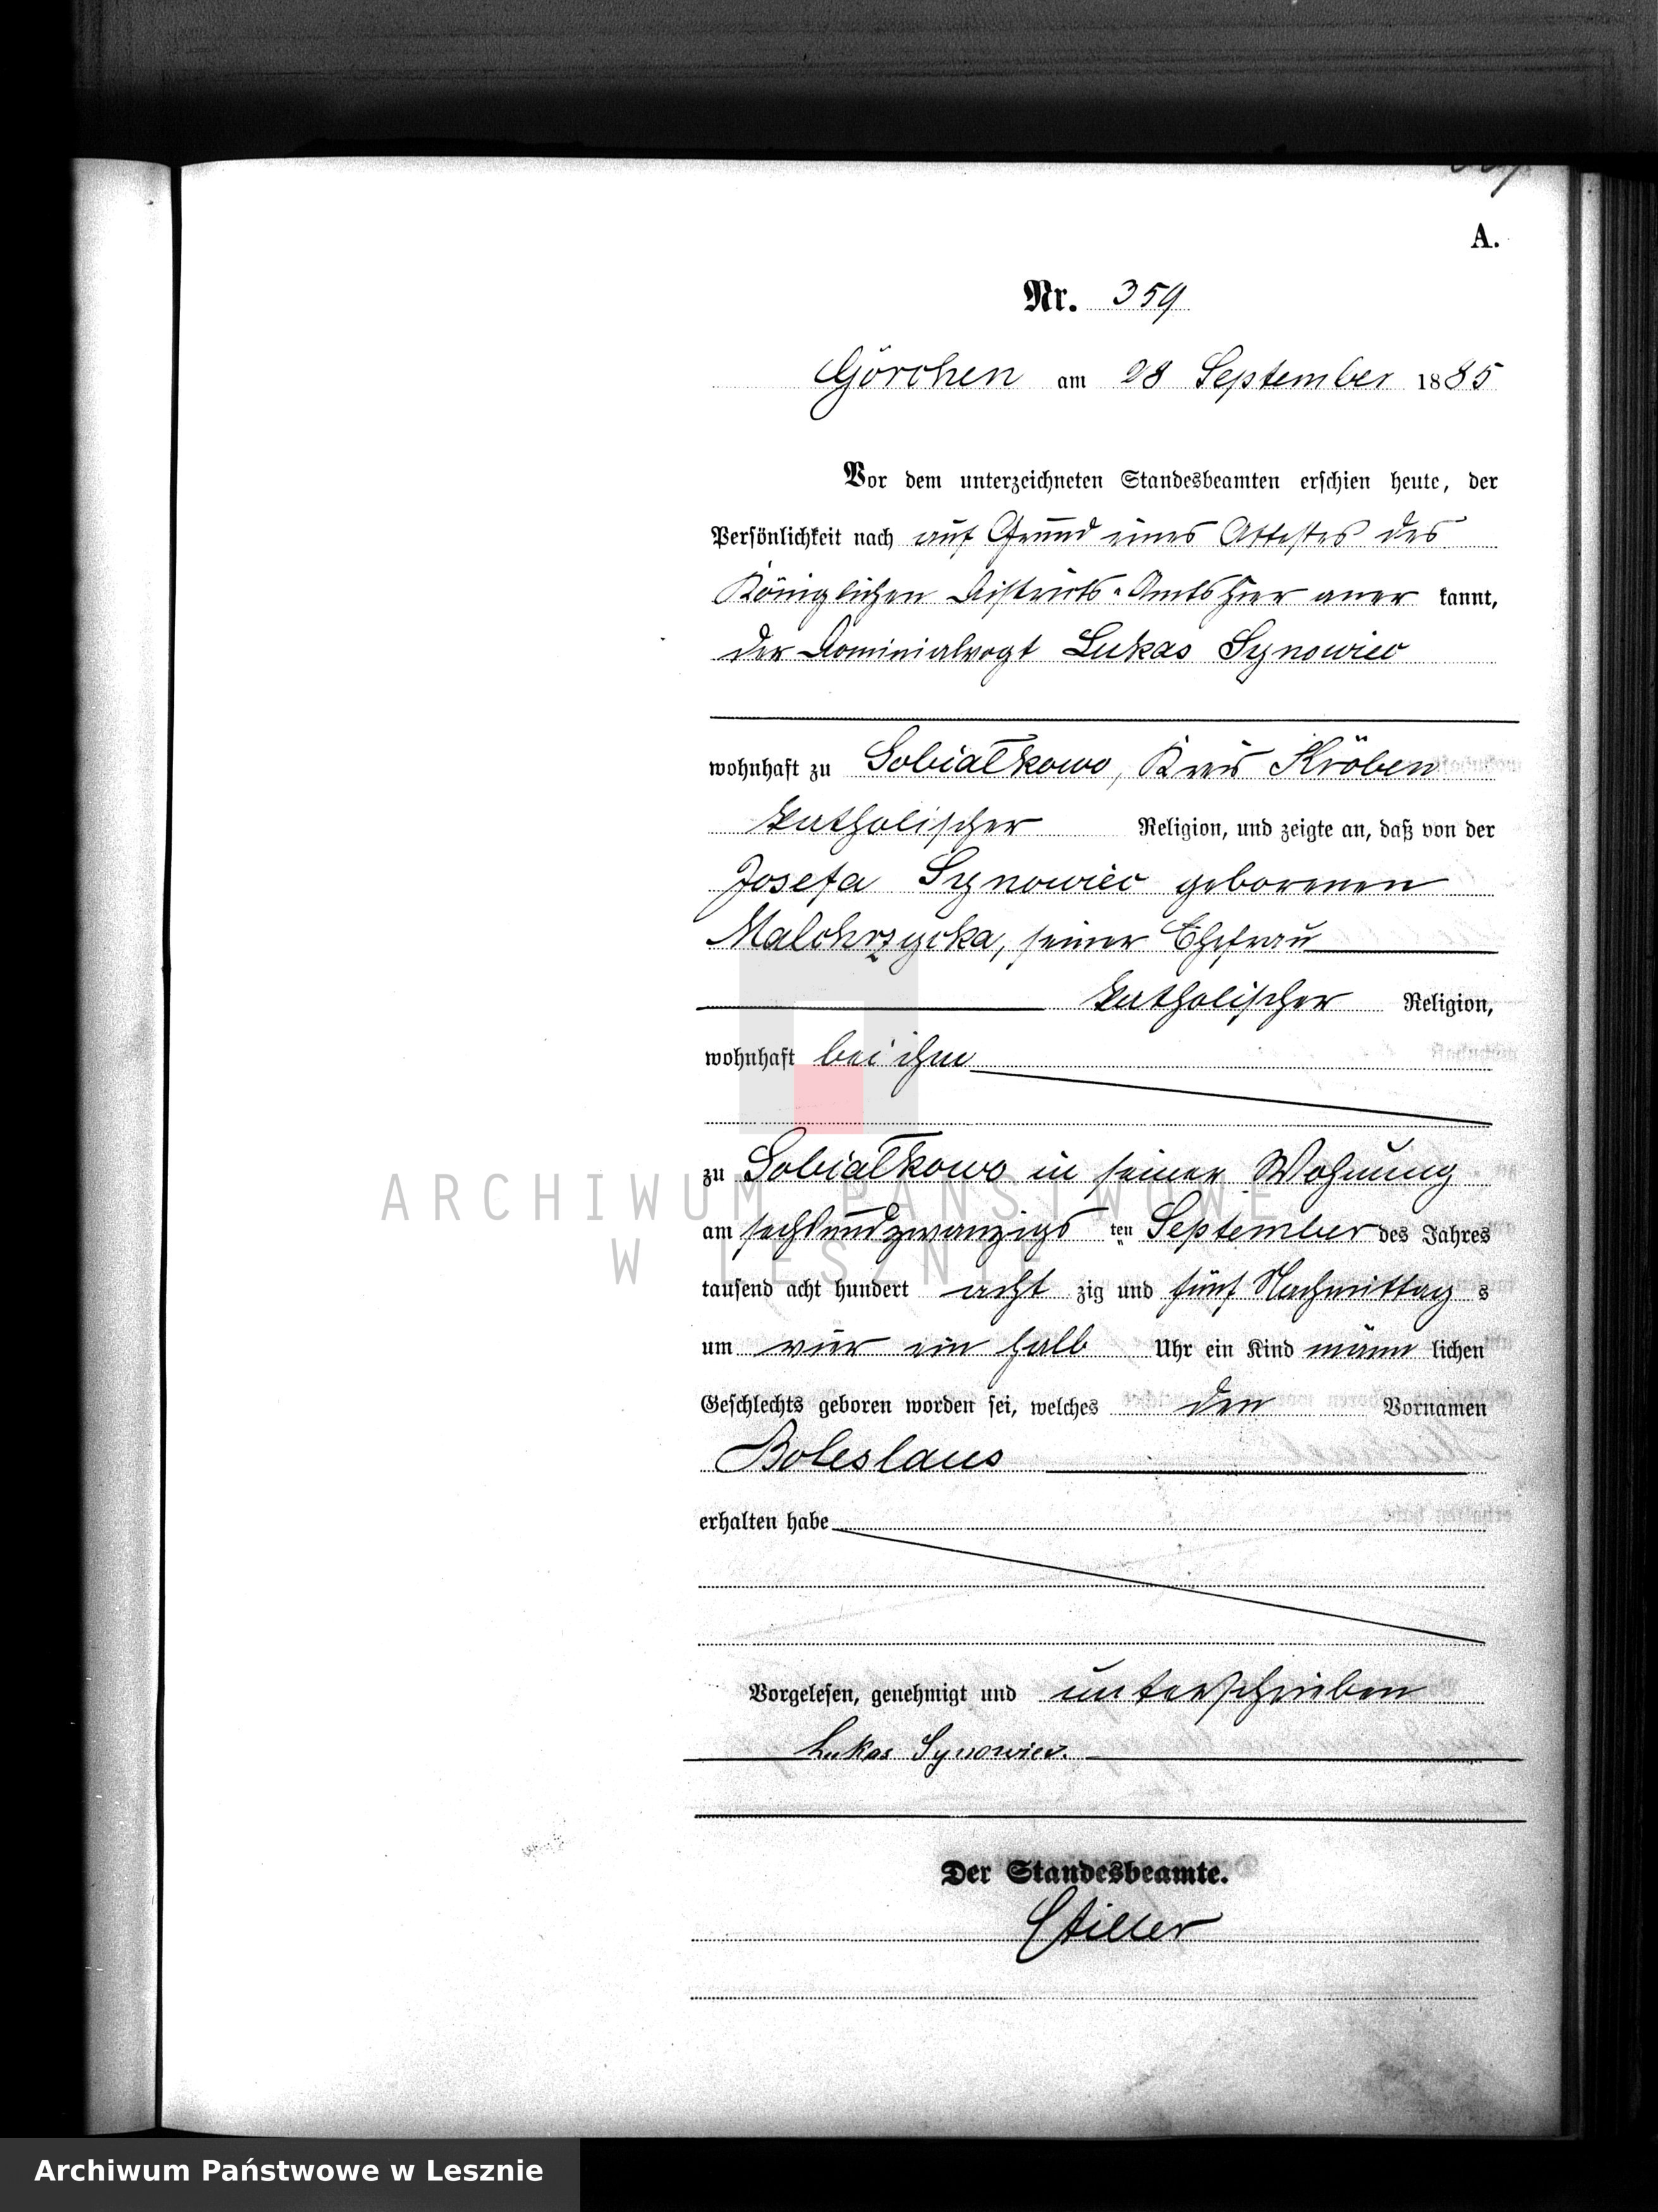 A.
Nr. 359
Görchen am 28 September 1885
Vor dem unterzeichneten Standesbeamten erschien heute, der
Persönlichkeit nach auf Grund eines Attestes des
Königlichen Districts-Amts hier aner kannt,
der Dominialvogt Lukas Synowiec
wohnhaft zu Sobiałkowo, Kreis Kröben
katholischer Religion, und zeigte an, daß von der
Josefa Synowiec geborenen
Malchrzycka, seiner Ehefrau
katholischer Religion,
wohnhaft bei ihm
zu Sobiałkowo in seiner Wohnung
am sechsundzwanzigs ten September des Jahres
tausend acht hundert acht zig und fünf Nachmittag s
um vier ein halb Uhr ein Kind männ lichen
Geschlechts geboren worden sei, welches den Vornamen
Boleslaus
erhalten habe
Vorgelesen, genehmigt und unterschrieben
Lukas Synowiec.
Der Standesbeamte.
Stiller
ARCHIWUM PAŃSTWOWE
W LESZNIE
Archiwum Państwowe w Lesznie